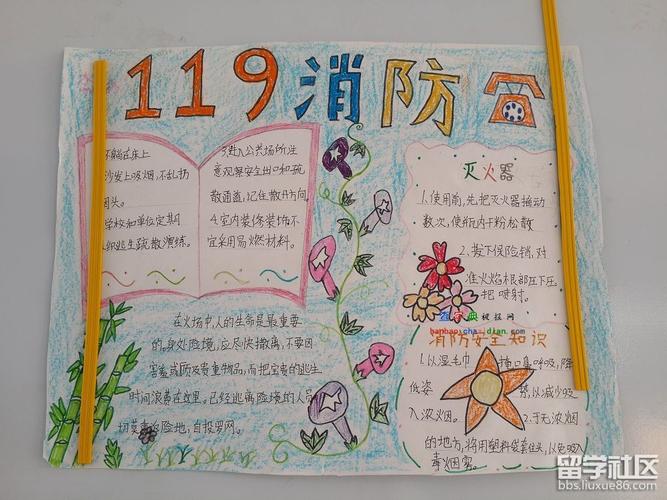 119消防
不躺在床上
沙发上吸烟,不乱扔
烟头。
学校和单位定期
组织逃生疏散演练。
3.进入公共场所注
意观察安全出口和疏
散通道,记住散开方向。
4.室内装修装饰不
宜采用易燃材料。
灭火器
1.使用前,先把灭火器摇动
数次,使瓶内干粉松散
2.拔下保险销,对
准火焰根部压下压
把喷射。
在火场中,人的生命是最重要
的。身处险境,应尽快撤离,不要因
害羞或顾及贵重物品,而把宝贵的逃生
时间浪费在这里。已经逃离险境的人员
切莫重返险地,自投罗网。
消防安全知识
1.以湿毛巾掩口鼻呼吸,降
低姿势,以减少吸
入浓烟。2.于无浓烟
的地方,将用塑料袋套住头,以免吸入
毒烟雾。
板报网
banbao.cha dian.com
留学社区
bbs.liuxue86.com